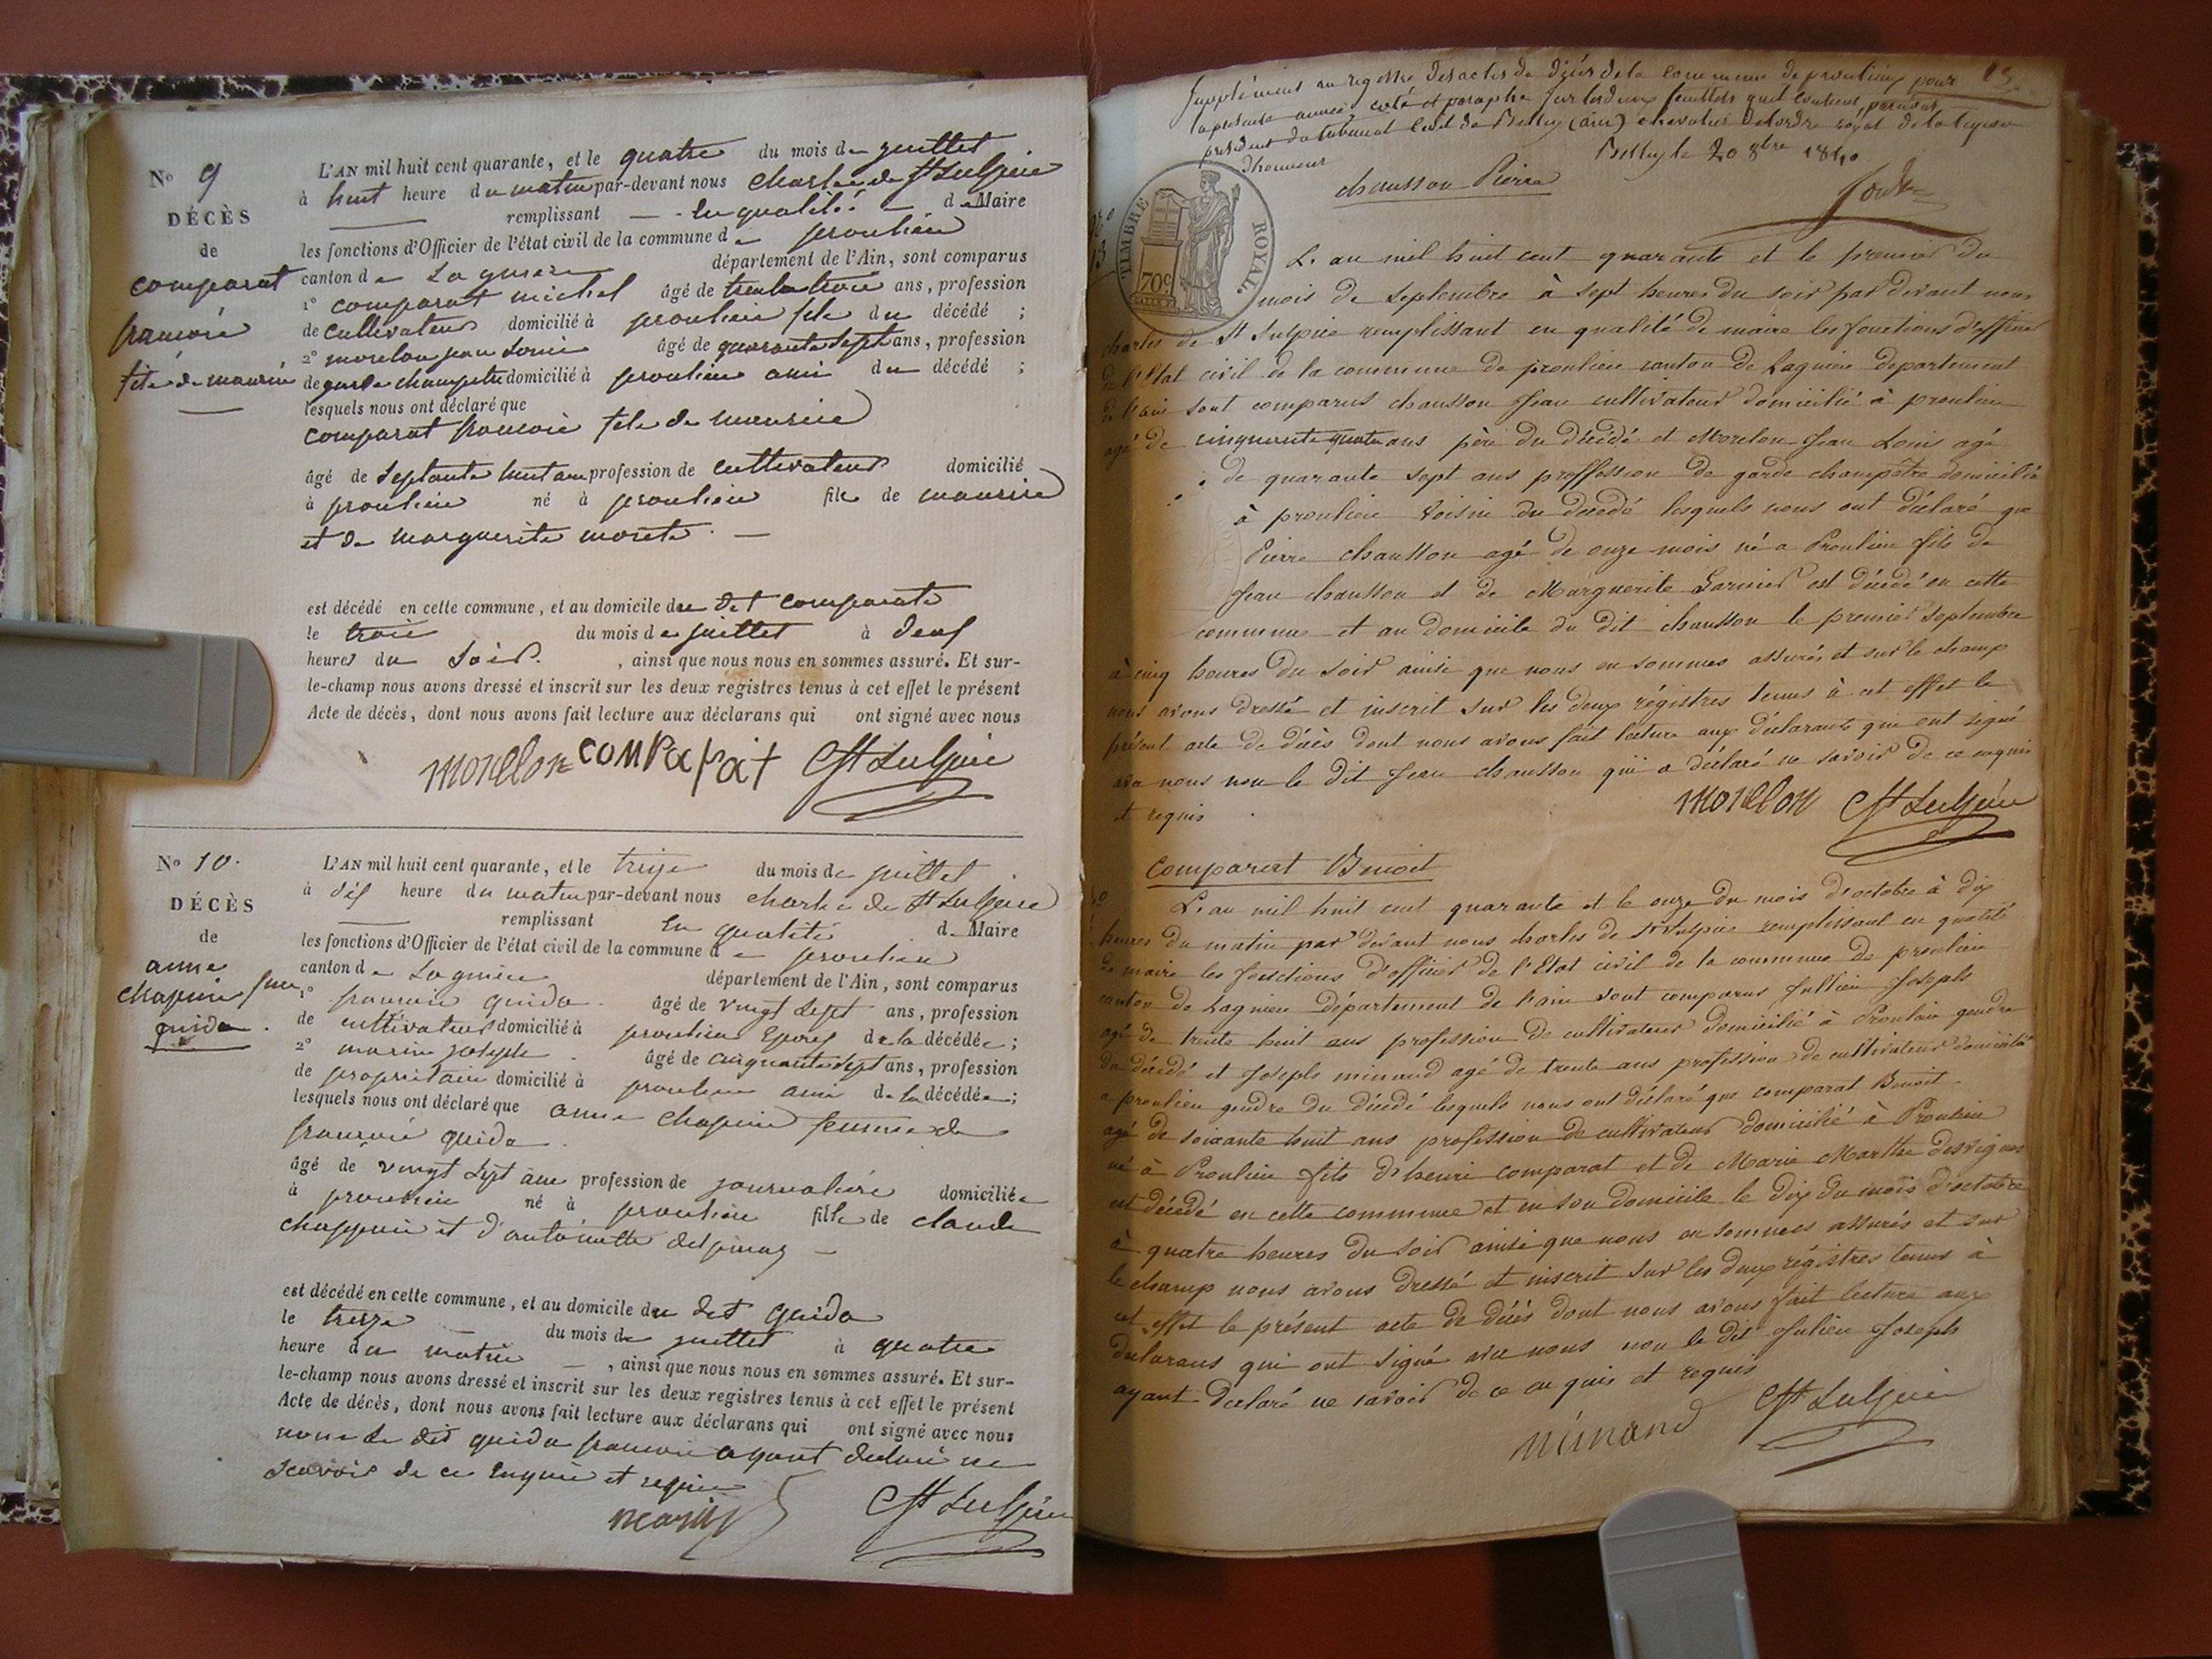 No 9
DÉCÈS
de
comparat
francois
fils de maurice
L'AN mil huit cent quarante, et le quatre du mois de juillet
à huit heure du matin par-devant nous charles de St Sulpice
remplissant en qualité de Maire
les fonctions d'Officier de l'état civil de la commune de proulieu
canton de Lagnieu département de l'Ain, sont comparus
1° comparat michel âgé de trente trois ans, profession
de cultivateur domicilié à proulieu fils du décédé ;
2° morelon jean Louis âgé de quarante sept ans, profession
de garde champetre domicilié à proulieu ami du décédé ;
lesquels nous ont déclaré que
comparat francois fils de maurice
âgé de septante huit ans profession de cultivateur domicilié
à proulieu né à proulieu fils de maurice
et de marguerite
est décédé en cette commune, et au domicile du dit comparat
le trois du mois de juillet à
heures du soir, ainsi que nous nous en sommes assuré. Et sur-
le-champ nous avons dressé et inscrit sur les deux registres tenus à cet effet le présent
Acte de décès, dont nous avons fait lecture aux déclarans qui ont signé avec nous
morelon comparat C St Sulpice
No 10.
DÉCÈS
de
anne
chapuis fme
guida
L'AN mil huit cent quarante, et le treize du mois de juillet
à dix heure du matin par-devant nous charles de St Sulpice
remplissant en qualité de Maire
les fonctions d'Officier de l'état civil de la commune de proulieu
canton de Lagnieu département de l'Ain, sont comparus
1° francois guida âgé de vingt sept ans, profession
de cultivateur domicilié à proulieu Epoux de la décédée ;
2° marin joseph âgé de cinquante sept ans, profession
de propriétaire domicilié à proulieu ami de la décédée ;
lesquels nous ont déclaré que anne chapuis femme de
francois guida
âgé de vingt sept ans profession de journalière domiciliée
à proulieu né à proulieu fille de claude
chappuis et d'antoinette
est décédé en cette commune, et au domicile du dit guida
le treize du mois de juillet à quatre
heure du matin, ainsi que nous nous en sommes assuré. Et sur-
le-champ nous avons dressé et inscrit sur les deux registres tenus à cet effet le présent
Acte de décès, dont nous avons fait lecture aux déclarans qui ont signé avec nous
non le dit guida francois ayant declaré ne
scavoir de ce enquis et requis
marin C St Sulpice
Supplément au registre des actes de décès de la commune de proulieu pour
la présente année, coté et paraphé sur les deux feuillets qu'il contient par nous
président du tribunal civil de Belley (ain) chevalier de l'ordre royal de la légion
d'honneur Belley le 20 8bre 1840
13
TIMBRE ROYAL.
70c
chausson Pierre
L'an mil huit cent quarante et le premier du
mois de septembre à sept heures du soir par devant nous
charles de St Sulpice remplissant en qualité de maire les fonctions d'officier
de l'Etat civil de la commune de proulieu canton de Lagnieu departement
de l'ain sont comparus chausson Jean cultivateur domicilié à proulieu
agé de cinquante quatre ans père du décédé et Morelon Jean Louis agé
de quarante sept ans proffession de garde champêtre domicilié
à proulieu voisin du décédé lesquels nous ont déclaré que
Pierre chausson agé de onze mois né a Proulieu fils de
Jean chausson et de Marguerite est décédé en cette
commune et au domicile du dit chausson le premier septembre
à cinq heures du soir ainsi que nous en sommes assurés et sur le champ
nous avons dressé et inscrit sur les deux régistres tenus à cet effet le
présent acte de décès dont nous avons fait lecture aux déclarants qui ont signé
avec nous non le dit Jean chausson qui a déclaré ne savoir de ce enquis
et requis
morelon C St Sulpice
comparat Benoit
L'an mil huit cent quarante et le onze du mois d'octobre à dix
heures du matin par devant nous charles de St Sulpice remplissant en qualité
de maire les fonctions d'officier de l'Etat civil de la commune de proulieu
canton de Lagnieu département de l'ain sont comparus Jullien Joseph
agé de trente huit ans profession de cultivateur domicilié à Proulieu gendre
du décédé et Joseph minand agé de trente ans profession de cultivateur domicilié
a proulieu gendre du décédé lesquels nous ont déclaré que comparat Benoit
agé de soixante huit ans profession de cultivateur domicilié à Proulieu
né à Proulieu fils d'henri comparat et de Marie Marthe desvignes
est décédé en cette commune et en son domicile le dix du mois d'octobre
à quatre heures du soir ainsi que nous en sommes assurés et sur
le champ nous avons dressé et inscrit sur les deux régistres tenus à
cet effet le présent acte de décès dont nous avons fait lecture aux
déclarans qui ont signé avec nous non le dit Julien Joseph
ayant declaré ne savoir de ce en quis et requis
minand C St Sulpice